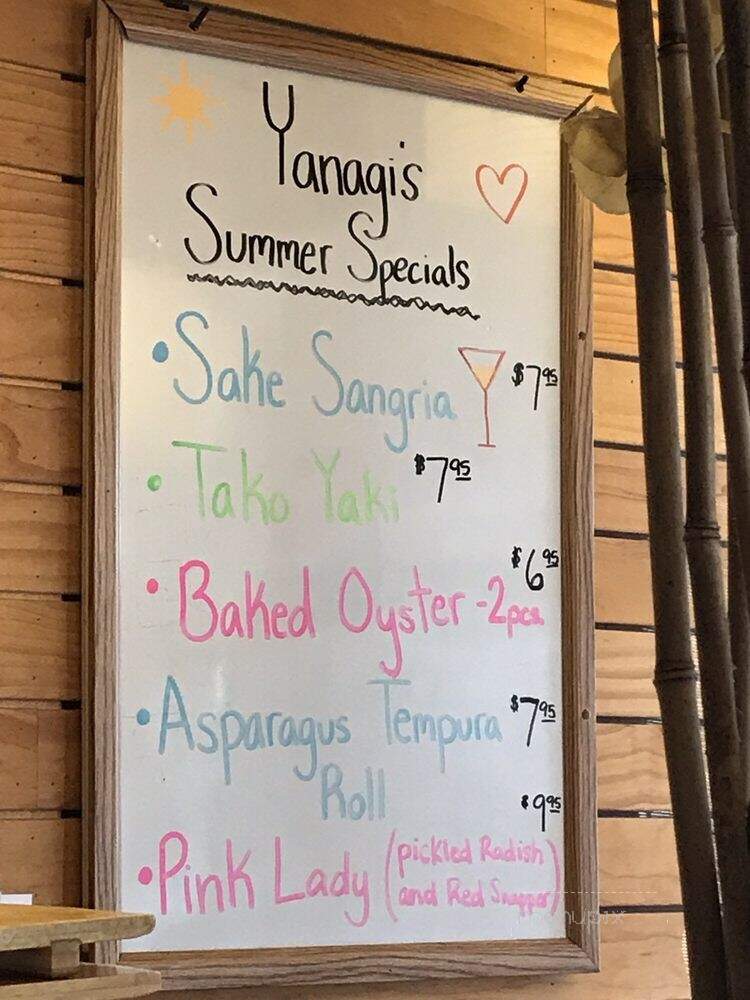 Yanagi's
Summer Specials
• Sake Sangria $7.95
• Tako Yaki $7.95
• Baked Oyster - 2pcs $6.95
• Asparagus Tempura $7.95
Roll
• Pink Lady (pickled Radish $9.95
and Red Snapper)